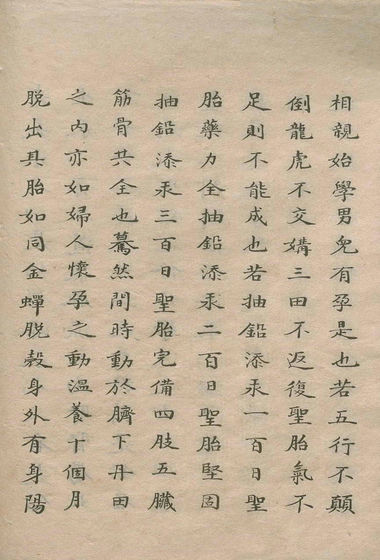 相親始學男兒有孕是也若五行不顛
倒龍虎不交媾三田不返復聖胎氣不
足則不能成也若抽鉛添汞一百日聖
胎藥力全抽鉛添汞二百日聖胎堅固
抽鉛添汞三百日聖胎完備四肢五臟
筋骨共全也驀然間時動於臍下丹田
之内亦如婦人懷孕之動溫養十個月
脱出其胎如同金蟬脱殼身外有身陽